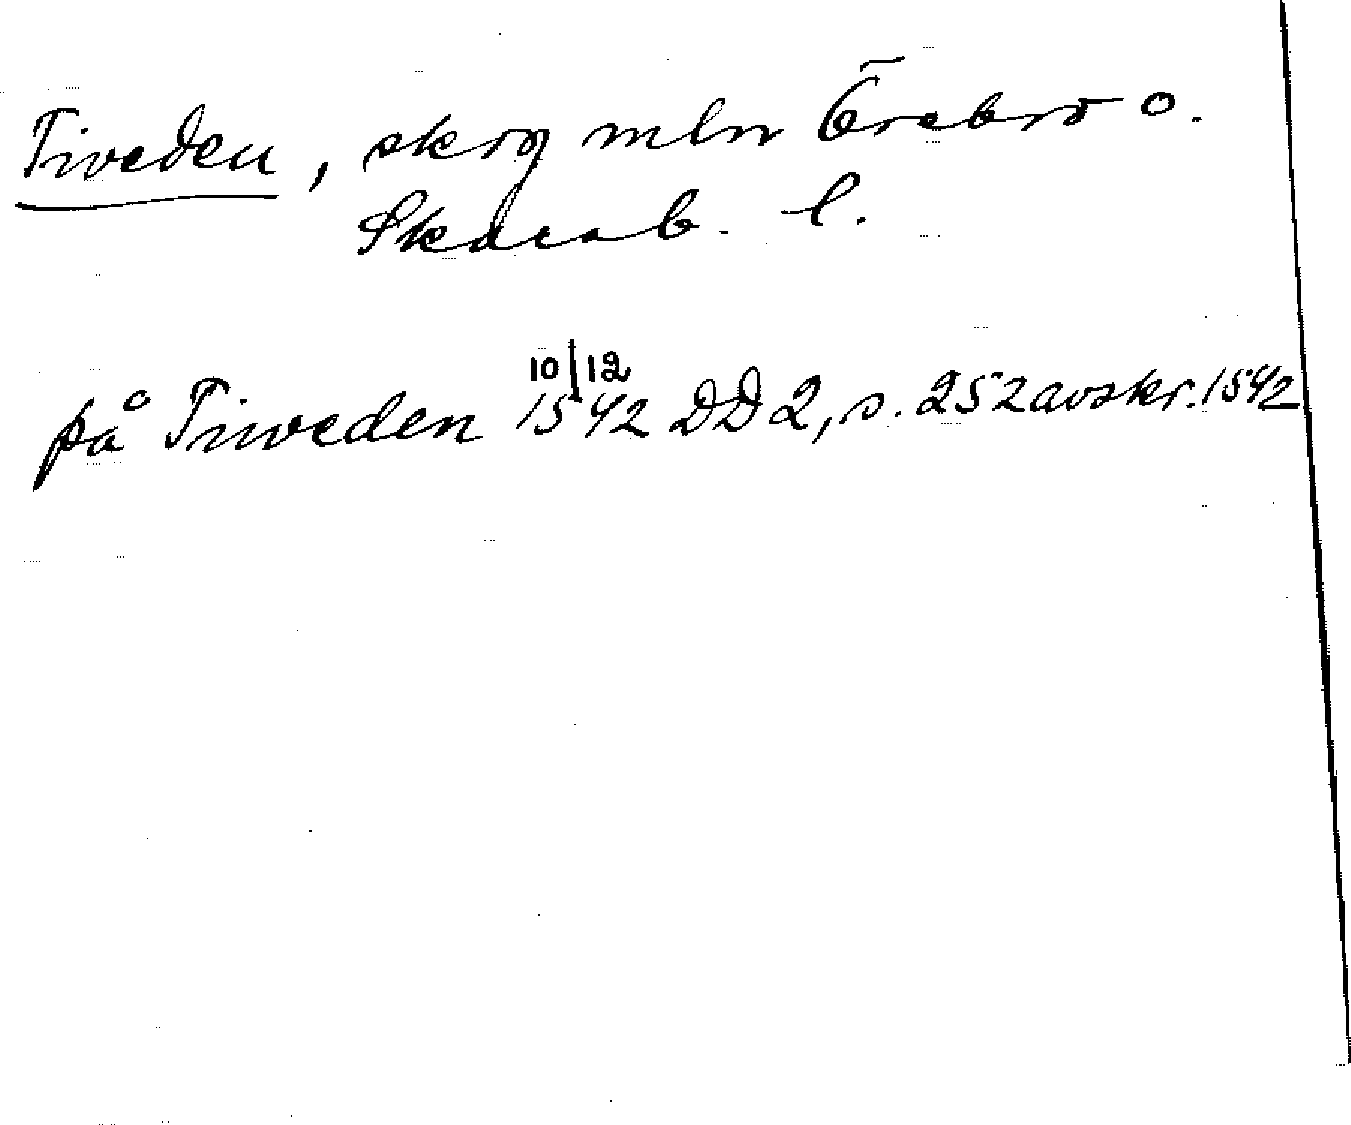 Tiveden, skog mln Örebro o.
Skarab. l.
10/12
på Tiweden 1542 DD2, s. 252 avskr. 1542